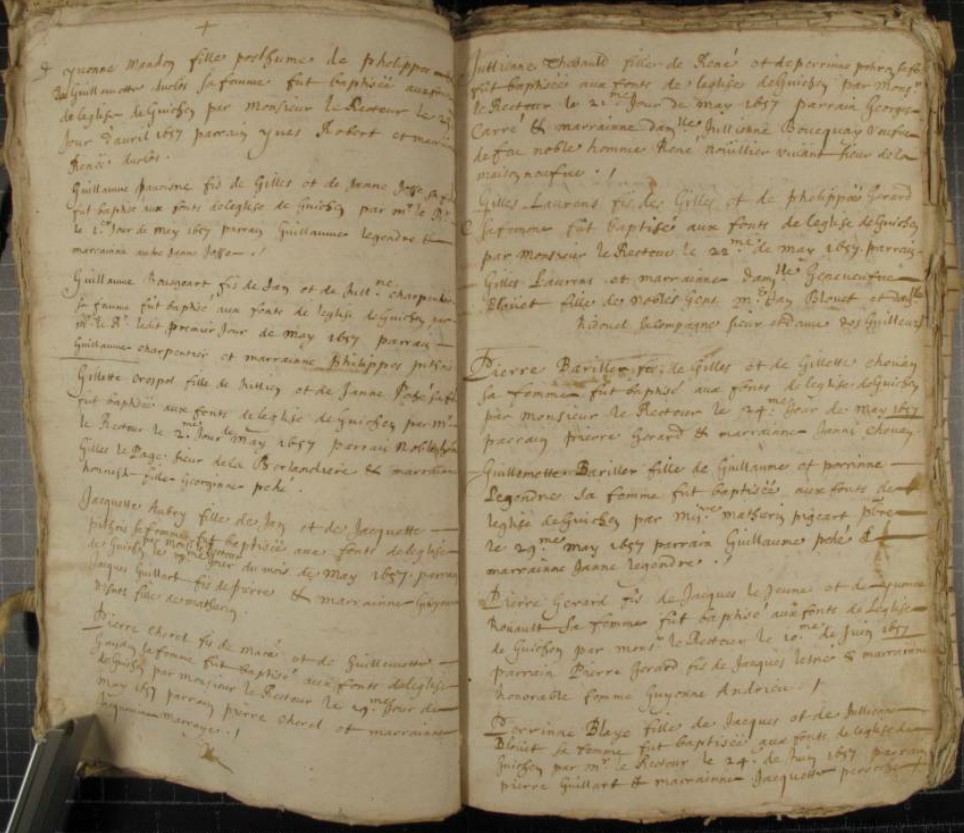 yvonne Mandon fille posthume de phelippes
Guillemette dulos sa femme fut baptisée aux fonts
de leglise de Guichen par Monsieur le Recteur le 29
Jour d'avril 1657 parrain yves Robert et marraine
Renée dulos.
Guillaume fis de Gilles et de Janne Josse sa femme
fut baptisé aux fonts deleglise de Guichen par mr le Rr
le 1er Jour de may 1657 parrain Guillaume legendre &
marrainne autre Janne Josse ./
Guillaume Bougeart fis de Jan et de Jullne charpentier
sa femme fut baptisé aux fonts de leglise de Guichen par
mr le Rr ledit premier Jour de may 1657 parrain
Guillaume charpentier et marrainne Phelippes
Gillette Crespel fille de Jullien et de Janne sa fe
fut baptisée aux fonts deleglise de Guichen par mr
le Recteur le 2me Jour de May 1657 parrain Noble homme
Gilles le Page sieur dela & marrainne
honneste fille Georgenne pehé
Jacquette Aubry fille de Jan et de Jacquette
sa femme fut baptisée aux fonts deleglise
par monsr le Recteur
de Guichen le Jour du mois de May 1657 parrain
Jacques Guillart fis de pierre & marrainne Guyonne
fille de mathurin
Pierre Cherel fis de Marc et de Guillemette
sa femme fut baptisé aux fonts deleglise
de Guichen par monsieur le Recteur le 29me Jour de
may 1657 parrain pierre cherel et marrainne
Jacquemine ./
Jullienne Thebauld fille de René et de perrinne sa fe
fut baptisée aux fonts de leglise de Guichen par Monsr
le Recteur le 21me Jour de May 1657 parrain Georges
Carré & marrainne damlle Jullienne Bocquay veufve
de feu noble homme René vivant sieur de la
maison neufve ./
Gilles Laurens fis de Gilles et de phelippes Gerard
sa femme fut baptisé aux fonts de leglise de Guichen
par Monsieur le Recteur le 22me de may 1657 parrain
Gilles Laurens et marrainne damlle Geneviefve
Blouet fille de nobles Gens mre Jan Blouet et damlle
sa compagne sieur et dame des
Pierre Bariller fis de Gilles et de Gillette chouan
sa femme fut baptisé aux fonts de leglise de Guichen
par Monsieur le Recteur le 24me Jour de may 1657
parrain pierre Gerard & marrainne Janne chouan
Guillemette Bariller fille de Guillaume et perrinne
Legendre sa femme fut baptisée aux fonts de
leglise de Guichen par Misre mathurin pigeart pbre
le 29me May 1657 parrain Guillaume pehé &
marrainne Janne legendre ./
Pierre Gerard fis de Jacques le Jeune et de yvonne
Rouault sa femme fut baptisé aux fonts de Leglise
de Guichen par monsr le Recteur le 10me de Juin 1657
parrain Pierre Gerard fis de Jacques lesné & marrainne
honorable femme Guyonne Andrieu ./
Perrinne Blaye fille de Jacques et de Jullienne
Bloüet sa femme fut baptisée aux fonts de leglise de
Guichen par mr le Recteur le 24 de Juin 1657 parrain
pierre Guillart & marrainne Jacquette